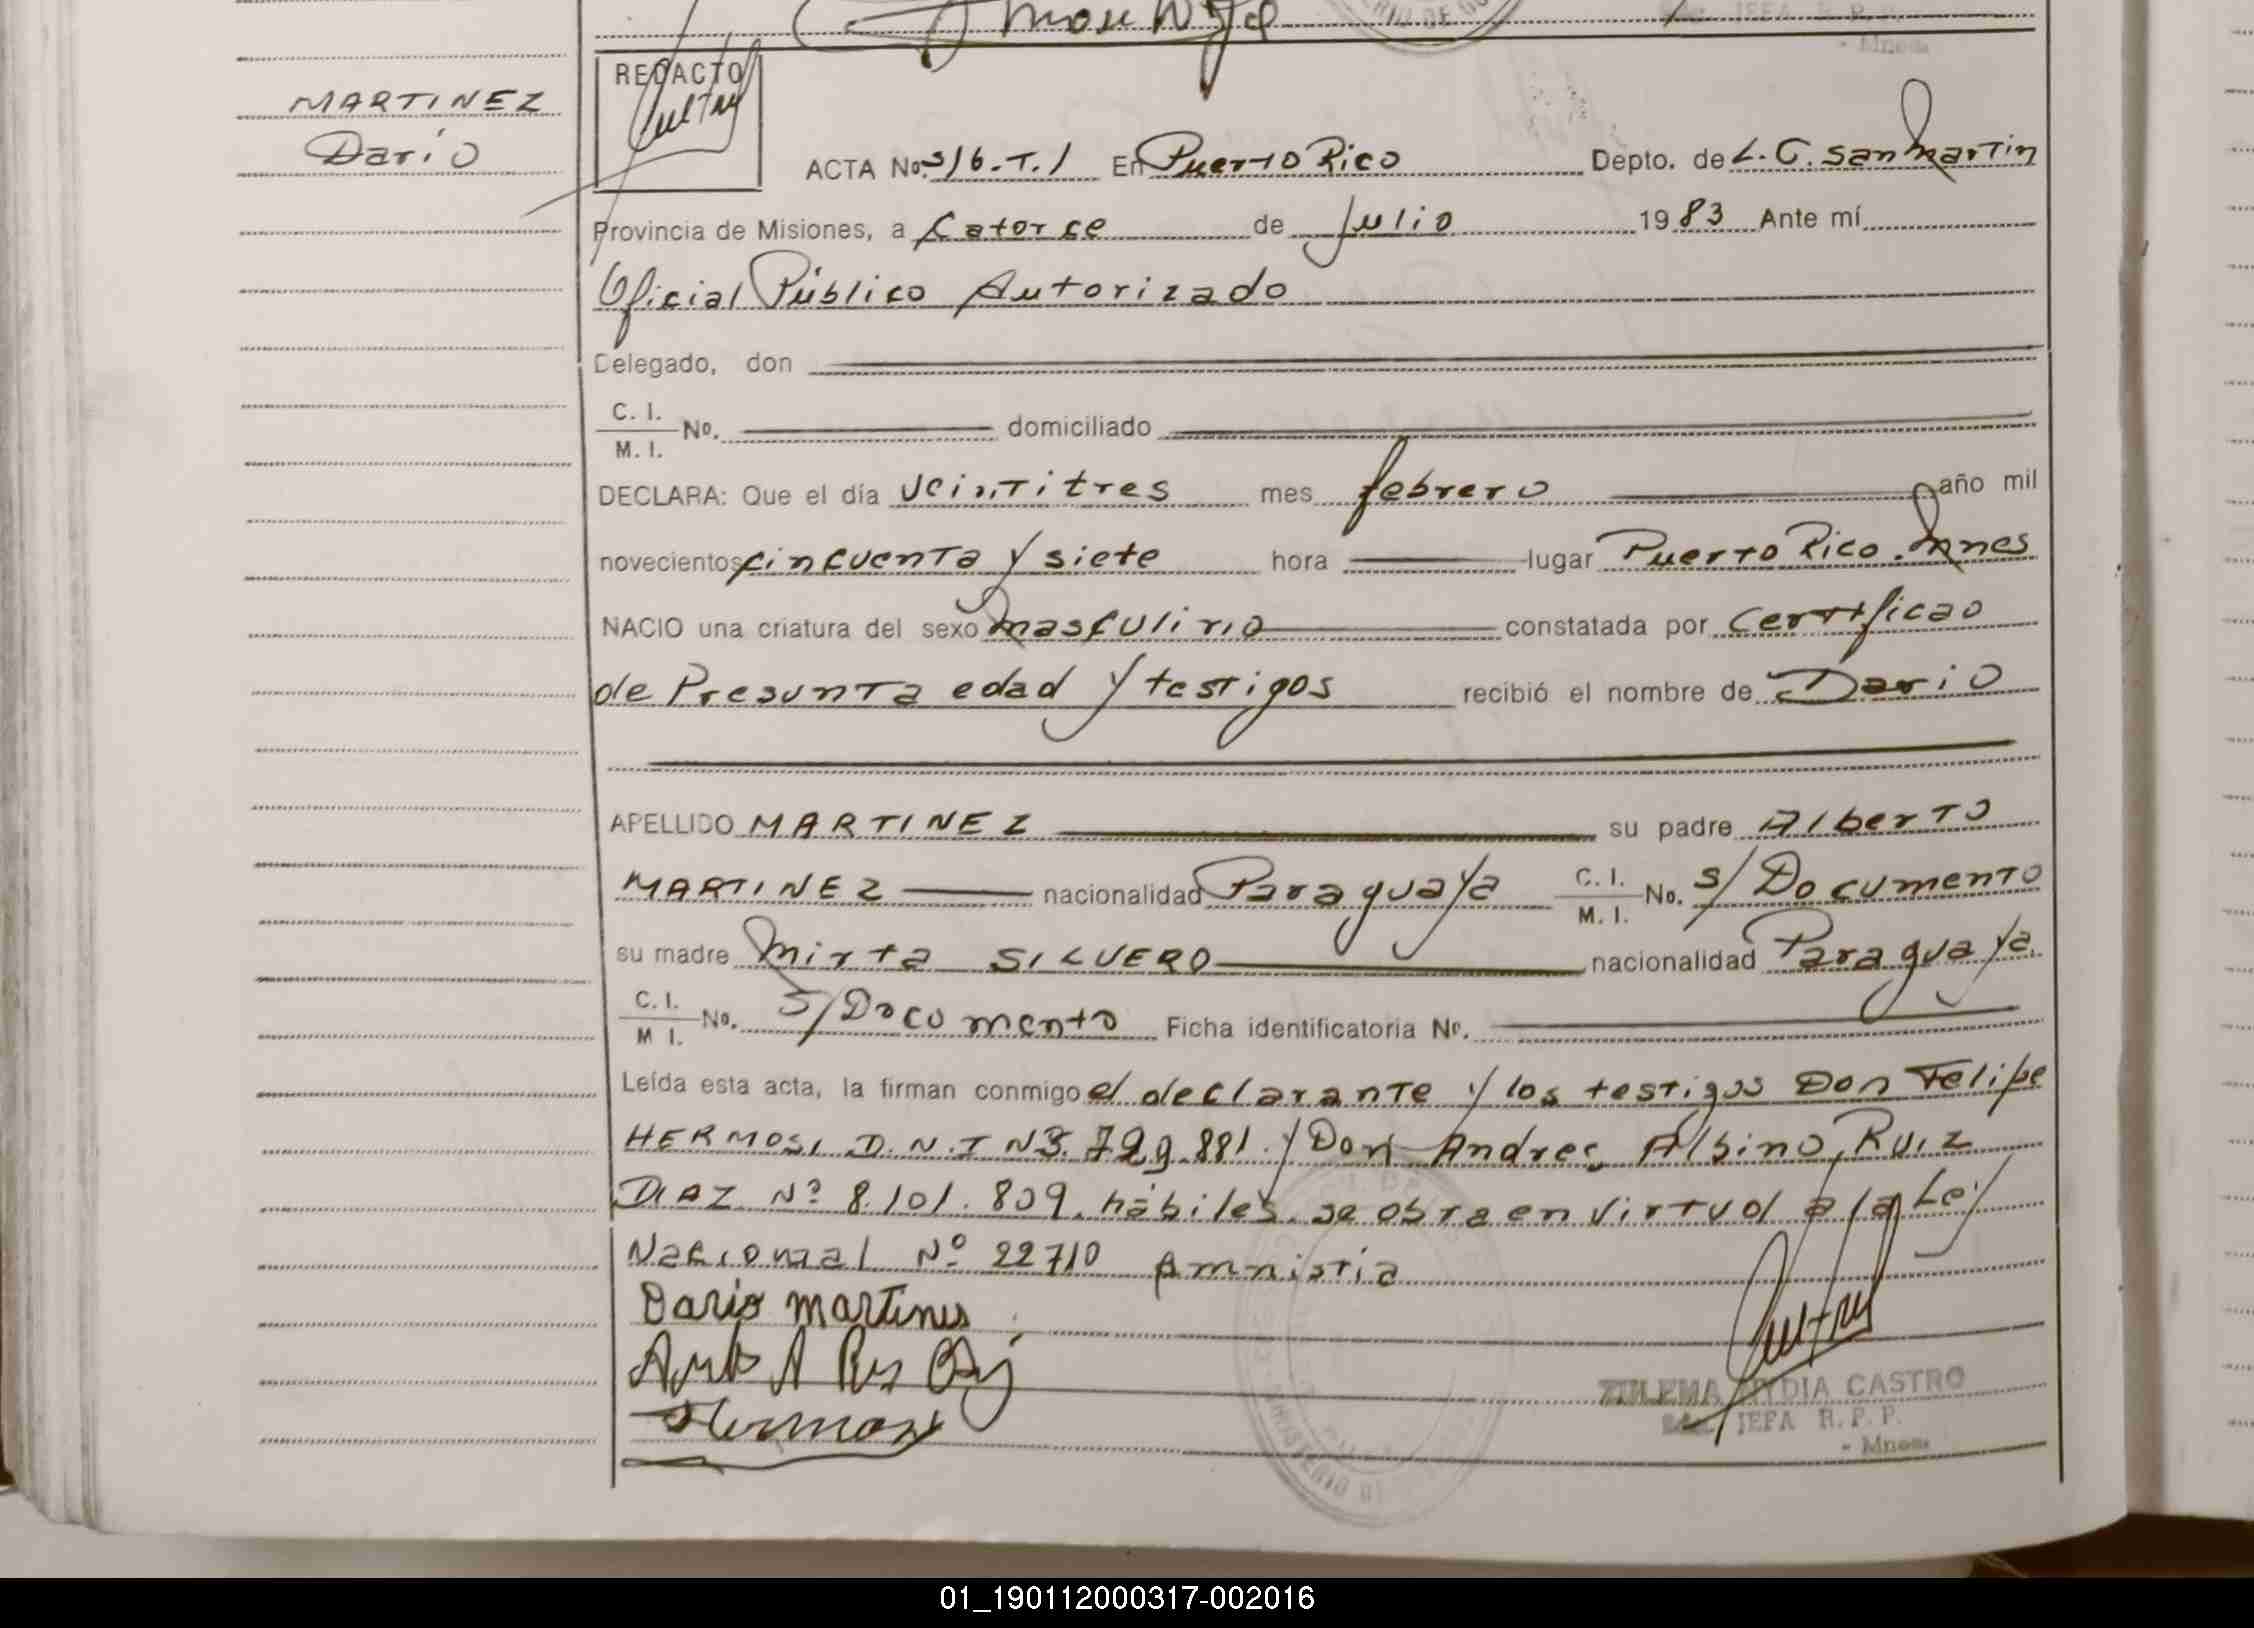 MARTINEZ
Dario
REDACTO
ACTA No. 316.T.1 En Puerto Rico Depto. de L. G. San Martin
Provincia de Misiones, a Catorce de Julio 1983 Ante mí
Oficial Público Autorizado
Delegado, don
C. I.
M. I. No. domiciliado
DECLARA: Que el día veintitres mes febrero año mil
novecientos cincuenta y siete hora lugar Puerto Rico. Mnes
NACIO una criatura del sexo masculino constatada por certificao
de Presunta edad y testigos recibió el nombre de Dario
APELLIDO MARTINEZ su padre Alberto
MARTINEZ nacionalidad Paraguaya C. I. M. I. No. S/Documento
su madre Mirta SILVERO nacionalidad Paraguaya.
C. I. M I. No. S/Documento Ficha identificatoria No.
Leída esta acta, la firman conmigo el declarante y los testigos Don Felipe
HERMOSI D.N.I N 3.729.881. y Don Andres Albino Ruiz
DIAZ Nº 8.101.809. hábiles. se obra en virtud a la Ley
Nacional Nº 22710 Amnistia
Dario martines
ZULEMA LYDIA CASTRO
JEFA R. P. P.
- Mnes.
01_190112000317-002016